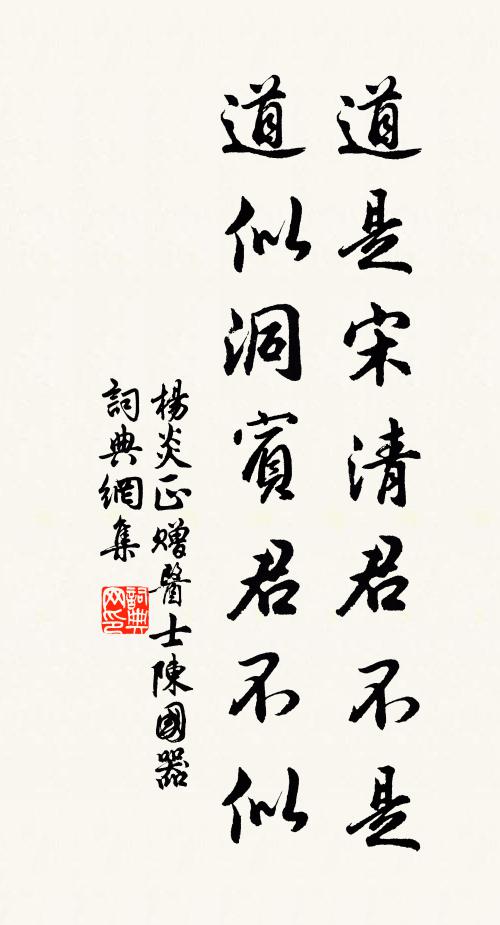 道是宋清君不是
道似洞賓君不似
楊炎正贈醫士陳國器
詞典網集
詞典
网印